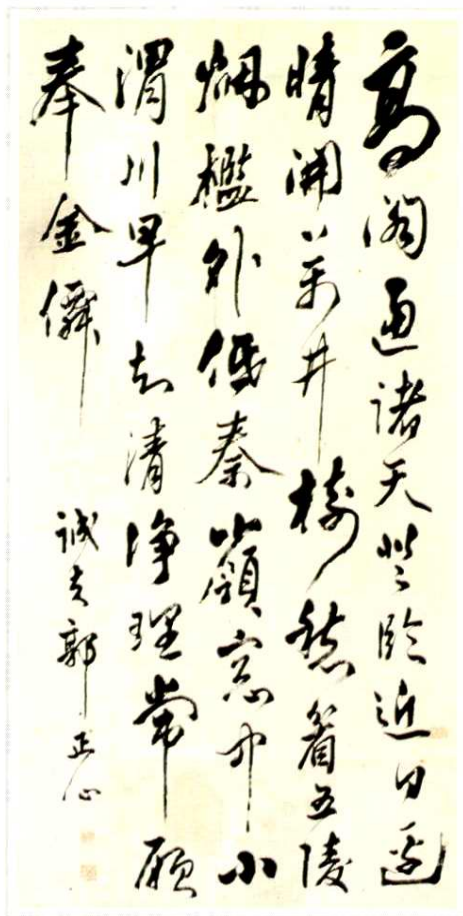 高閣逼諸天登臨近日邊
晴開萬井樹愁看五陵
烟檻外低秦嶺窓中小
渭川早知清淨理常願
奉金僊
誠 郭正心